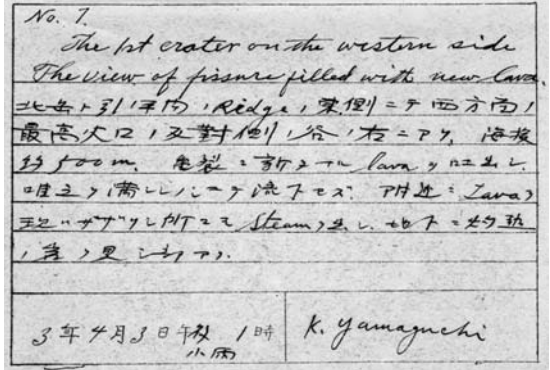 No. 7.
The 1st crater on the western side
The view of fissure filled with new lava.
北岳ト引ノ平間ノRidgeノ東側ニテ西方向ノ
最高火口ノ反對側ノ谷ノ右ニアリ, 海抜
約500m. 亀裂ニ新タナル lavaヲ吐出シ
唯之ヲ満シ シノミニテ流下セズ. 附近ニ Lavaヲ
所ニテ Steamヲ出シ. 地下ニ灼熱
ヲ見シ アリ.
3年4月3日午後1時
小雨
K. Yamaguchi